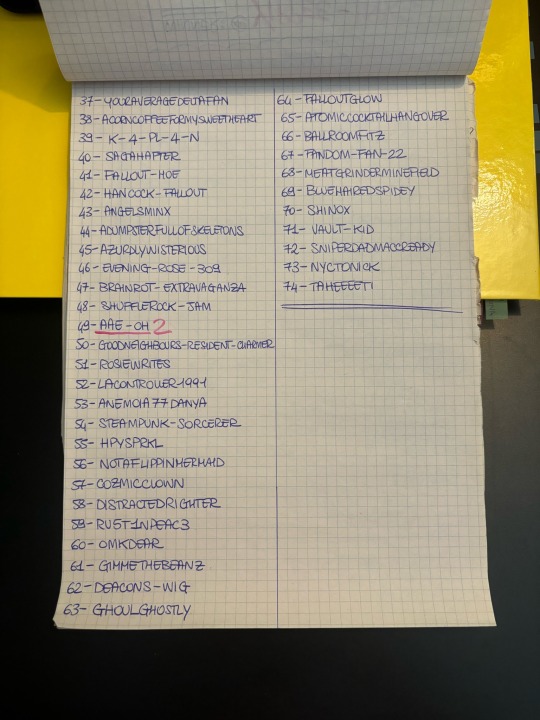 37- YOURAVERAGEDELTAFAN
38- ACORNCOFFEEFORMYSWEETHEART
39- K-4-PL-4-N
40- SAGAHAFTER
41- FALLOUT-HOE
42- HANCOCK-FALLOUT
43- ANGELSMINX
44- ADUMPSTERFULLOFSKELETONS
45- AZURDLYWISTERIOUS
46- EVENING-ROSE-309
47- BRAINROT-EXTRAVAGANZA
48- SHUFFLEROCK-JAM
49- AAE-OH 2
50- GOODNEIGHBOURS-RESIDENT-CHARMER
51- ROSIEWRITES
52- LACONTROLLER1991
53- ANEMOIA77DANYA
54- STEAMPUNK-SORCERER
55- HPYSPRKL
56- NOTAFLIPPINMERMAID
57- COZMICCLOWN
58- DISTRACTEDRIGHTER
59- RUST1NPEAC3
60- OMKDEAR
61- GIMMETHEBEANZ
62- DEACONS-WIG
63- GHOULGHOSTLY
64- FALLOUTGLOW
65- ATOMICCOCKTAILHANGOVER
66- BALLROOMFITZ
67- FANDOM-FAN-22
68- MEATGRINDERMINEFIELD
69- BLUEHAIREDSPIDEY
70- SHINOX
71- VAULT-KID
72- SNIPERDADMACCREADY
73- NYCTONICK
74- TAHEEEETI